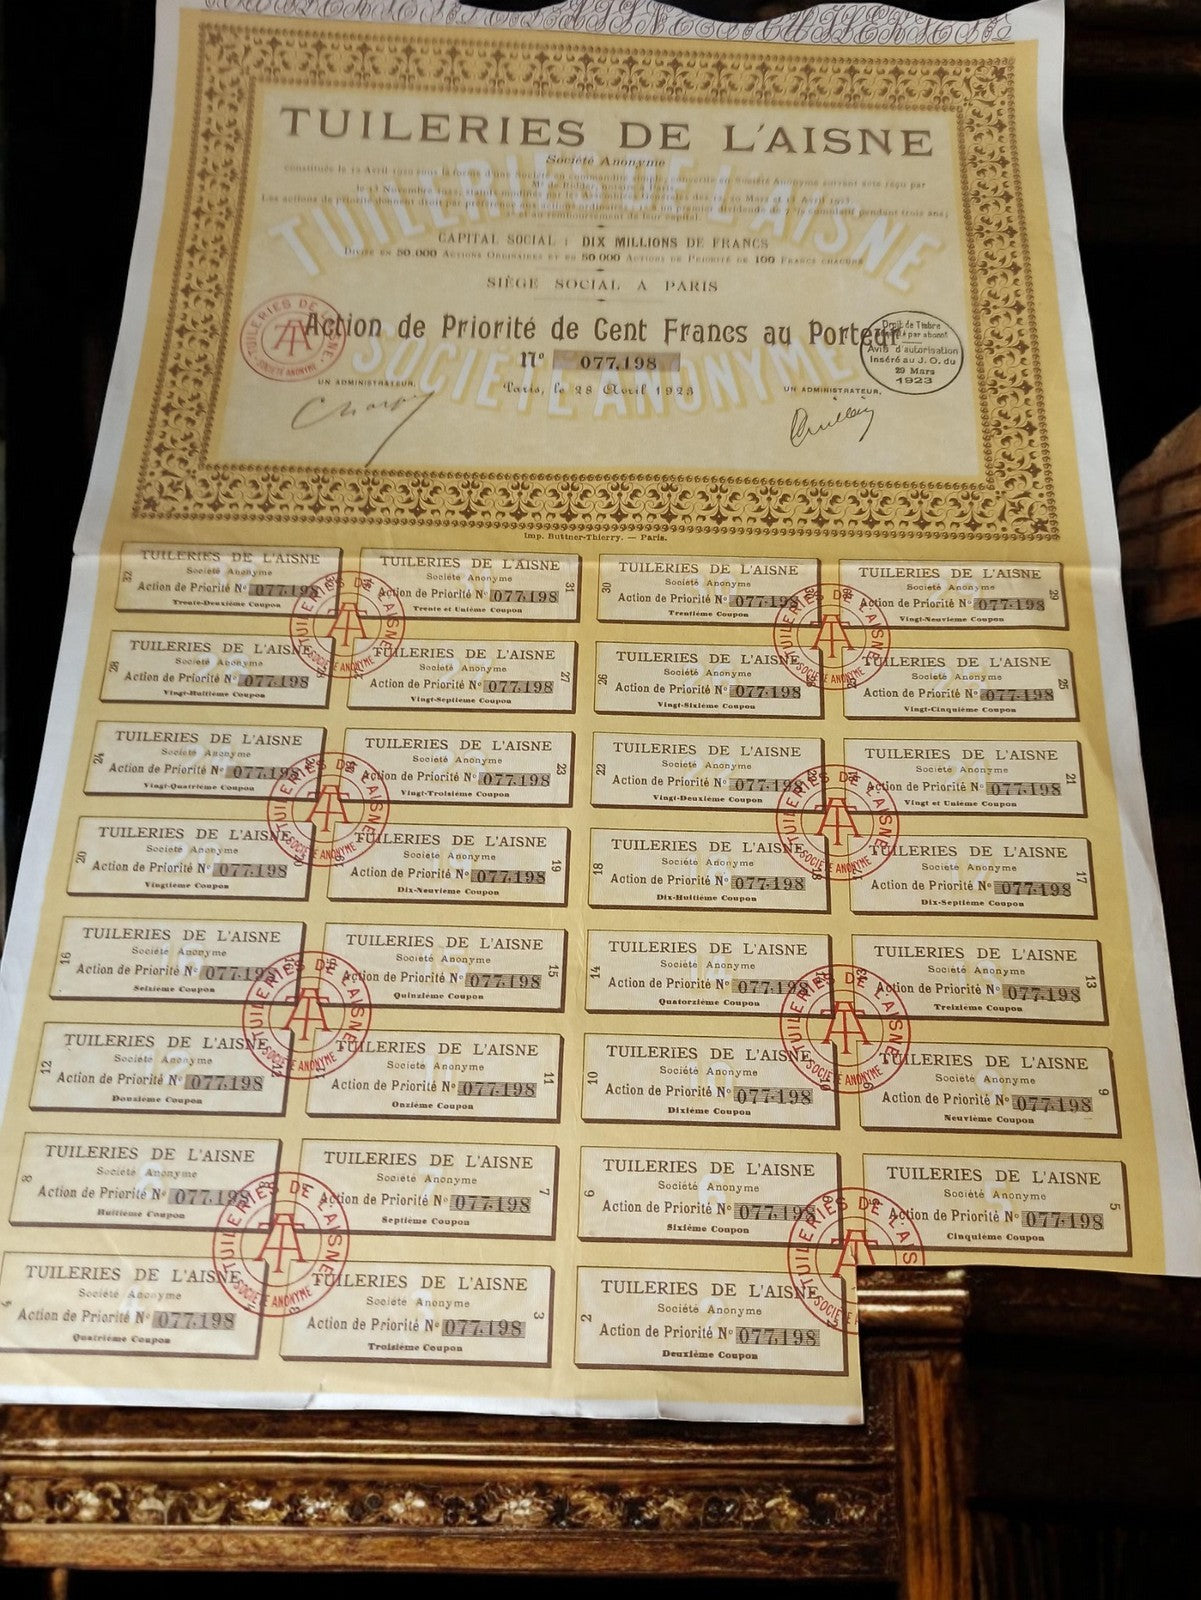 TUILERIES DE L'AISNE
Société Anonyme
constituée le 12 Avril 1920 sous la forme d'une Société en commandite transformée en Société Anonyme suivant acte reçu par
Les actions de priorité donnent droit par préférence un premier dividende de cumulatif pendant trois ans;
et au remboursement de leur capital.
CAPITAL SOCIAL : DIX MILLIONS DE FRANCS
DIVISÉ EN 50.000 ACTIONS ORDINAIRES ET EN 50.000 ACTIONS DE PRIORITÉ DE 100 FRANCS CHACUNE
SIÈGE SOCIAL A PARIS
Action de Priorité de Cent Francs au Porteur
N° 077,198
Paris, le 28 Avril 1923
UN ADMINISTRATEUR,
UN ADMINISTRATEUR,
TUILERIES DE L'AISNE
SOCIÉTÉ ANONYME
TUILERIES DE L'AISNE
SOCIÉTÉ ANONYME
Droit de Timbre
par abonnt
Avis d'autorisation
inséré au J. O. du
29 Mars
1923
Imp. Buttner-Thierry. — Paris.
32
TUILERIES DE L'AISNE
Société Anonyme
Action de Priorité N° 077,198
Trente-Deuxième Coupon
31
TUILERIES DE L'AISNE
Société Anonyme
Action de Priorité N° 077,198
Trente et Unième Coupon
30
TUILERIES DE L'AISNE
Société Anonyme
Action de Priorité N° 077,198
Trentième Coupon
29
TUILERIES DE L'AISNE
Société Anonyme
Action de Priorité N° 077,198
Vingt-Neuvième Coupon
28
TUILERIES DE L'AISNE
Société Anonyme
Action de Priorité N° 077,198
Vingt-Huitième Coupon
27
TUILERIES DE L'AISNE
Société Anonyme
Action de Priorité N° 077,198
Vingt-Septième Coupon
26
TUILERIES DE L'AISNE
Société Anonyme
Action de Priorité N° 077,198
Vingt-Sixième Coupon
25
TUILERIES DE L'AISNE
Société Anonyme
Action de Priorité N° 077,198
Vingt-Cinquième Coupon
24
TUILERIES DE L'AISNE
Société Anonyme
Action de Priorité N° 077,198
Vingt-Quatrième Coupon
23
TUILERIES DE L'AISNE
Société Anonyme
Action de Priorité N° 077,198
Vingt-Troisième Coupon
22
TUILERIES DE L'AISNE
Société Anonyme
Action de Priorité N° 077,198
Vingt-Deuxième Coupon
21
TUILERIES DE L'AISNE
Société Anonyme
Action de Priorité N° 077,198
Vingt et Unième Coupon
20
TUILERIES DE L'AISNE
Société Anonyme
Action de Priorité N° 077,198
Vingtième Coupon
19
TUILERIES DE L'AISNE
Société Anonyme
Action de Priorité N° 077,198
Dix-Neuvième Coupon
18
TUILERIES DE L'AISNE
Société Anonyme
Action de Priorité N° 077,198
Dix-Huitième Coupon
17
TUILERIES DE L'AISNE
Société Anonyme
Action de Priorité N° 077,198
Dix-Septième Coupon
16
TUILERIES DE L'AISNE
Société Anonyme
Action de Priorité N° 077,198
Seizième Coupon
15
TUILERIES DE L'AISNE
Société Anonyme
Action de Priorité N° 077,198
Quinzième Coupon
14
TUILERIES DE L'AISNE
Société Anonyme
Action de Priorité N° 077,198
Quatorzième Coupon
13
TUILERIES DE L'AISNE
Société Anonyme
Action de Priorité N° 077,198
Treizième Coupon
12
TUILERIES DE L'AISNE
Société Anonyme
Action de Priorité N° 077,198
Douzième Coupon
11
TUILERIES DE L'AISNE
Société Anonyme
Action de Priorité N° 077,198
Onzième Coupon
10
TUILERIES DE L'AISNE
Société Anonyme
Action de Priorité N° 077,198
Dixième Coupon
9
TUILERIES DE L'AISNE
Société Anonyme
Action de Priorité N° 077,198
Neuvième Coupon
8
TUILERIES DE L'AISNE
Société Anonyme
Action de Priorité N° 077,198
Huitième Coupon
7
TUILERIES DE L'AISNE
Société Anonyme
Action de Priorité N° 077,198
Septième Coupon
6
TUILERIES DE L'AISNE
Société Anonyme
Action de Priorité N° 077,198
Sixième Coupon
5
TUILERIES DE L'AISNE
Société Anonyme
Action de Priorité N° 077,198
Cinquième Coupon
4
TUILERIES DE L'AISNE
Société Anonyme
Action de Priorité N° 077,198
Quatrième Coupon
3
TUILERIES DE L'AISNE
Société Anonyme
Action de Priorité N° 077,198
Troisième Coupon
2
TUILERIES DE L'AISNE
Société Anonyme
Action de Priorité N° 077,198
Deuxième Coupon